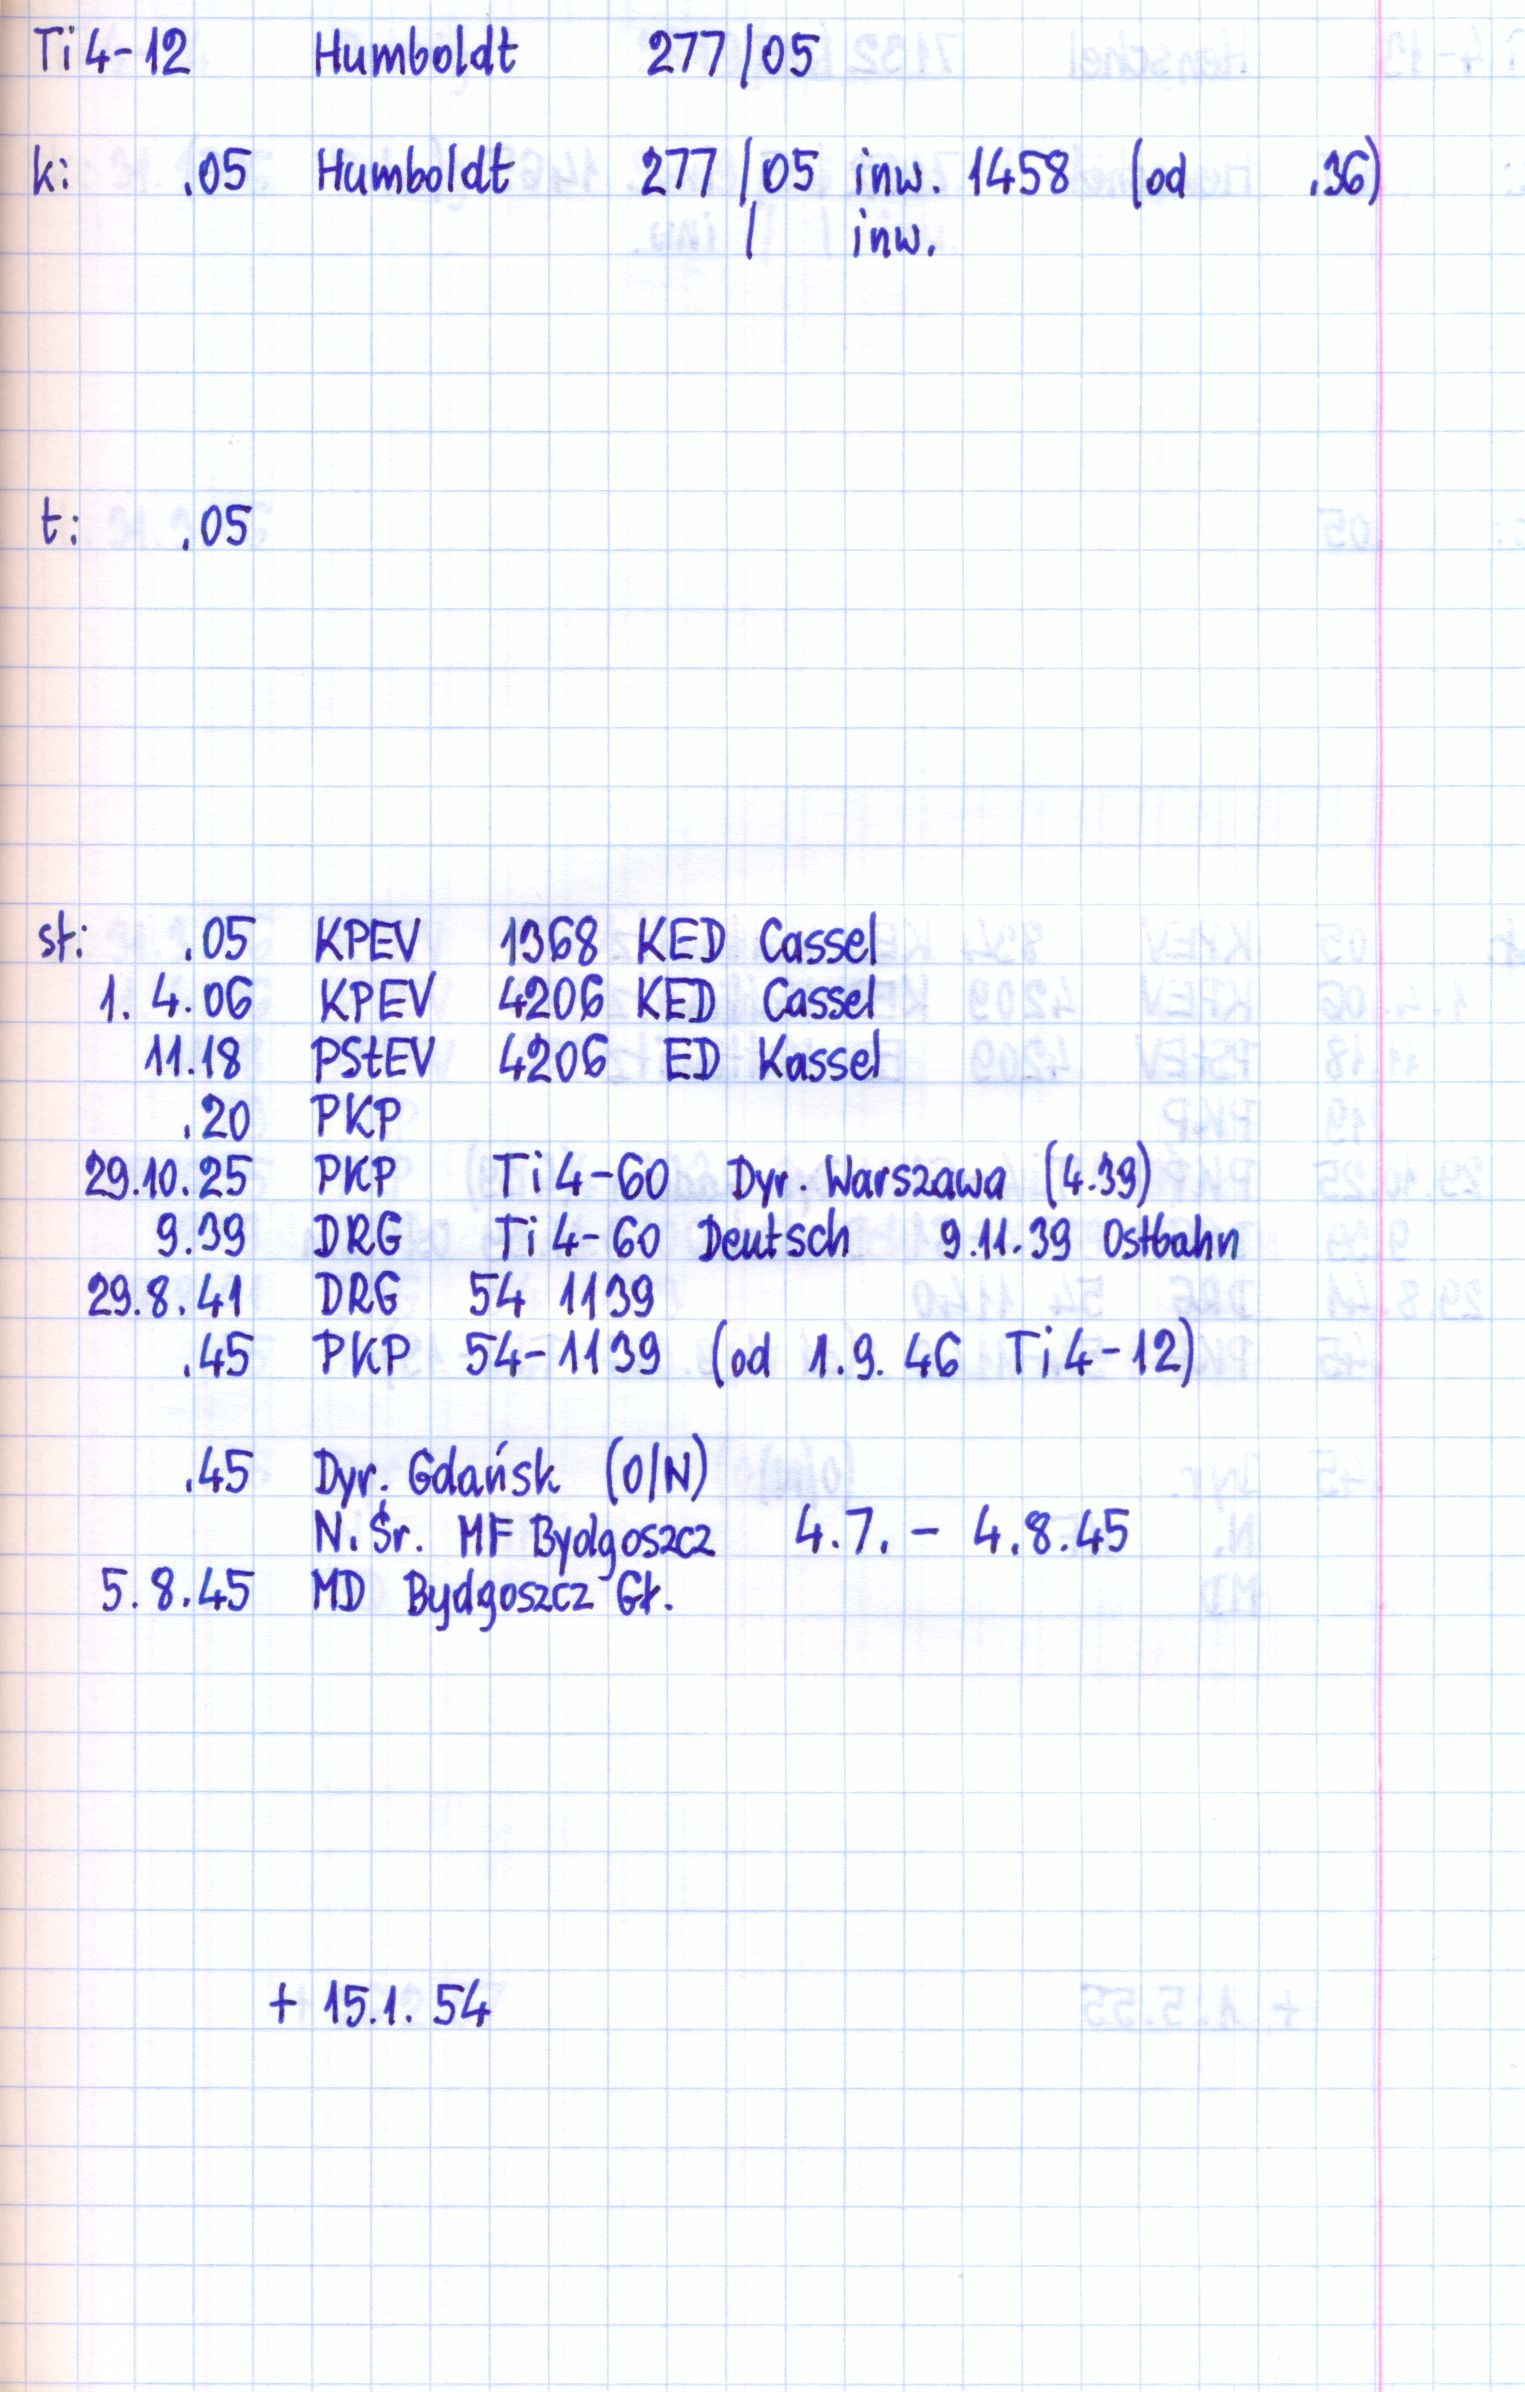 Ti4-12 Humboldt 277/05
k: .05 Humboldt 277/05 inw. 1458 (od .36)
/ inw.
t: .05
st: .05 KPEV 1368 KED Cassel
1. 4.06 KPEV 4206 KED Cassel
11.18 PStEV 4206 ED Kassel
.20 PKP
29.10.25 PKP Ti4-60 Dyr. Warszawa (4.39)
9.39 DRG Ti4-60 Deutsch 9.11.39 Ostbahn
29.8.41 DRG 54 1139
.45 PKP 54-1139 (od 1.9.46 Ti4-12)
.45 Dyr. Gdańsk (O/N)
N.Śr. MF Bydgoszcz 4.7. - 4.8.45
5.8.45 MD Bydgoszcz Gł.
+ 15.1.54